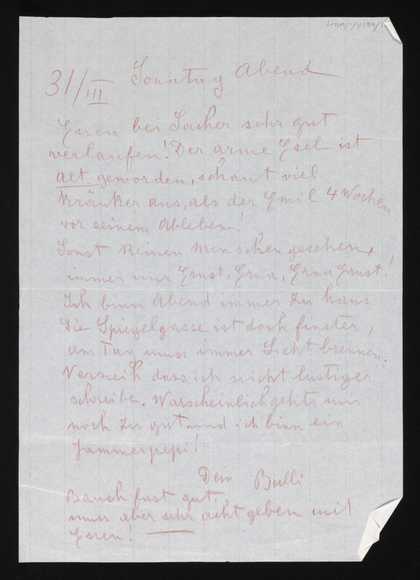 31/III Sonntag Abend
Essen bei Sacher sehr gut
verlaufen! Der arme Esel ist
alt geworden, schaut viel
kränker aus, als der Emil 4 Wochen
vor seinem Ableben!
Sonst keinen Menschen gesehen,
immer nur Ernst, Grün, Grün Ernst!
Ich binn Abend immer zu haus
Die Spiegelgasse ist doch finster,
am Tag muss immer Licht brennen.
Verzeih dass ich nicht lustiger
schreibe. Warscheinlich gehts mir
noch zu gut und ich binn ein
Jammerpepi!
Dein Bulli
Bauch fast gut,
muss aber sehr acht geben mit
Essen!